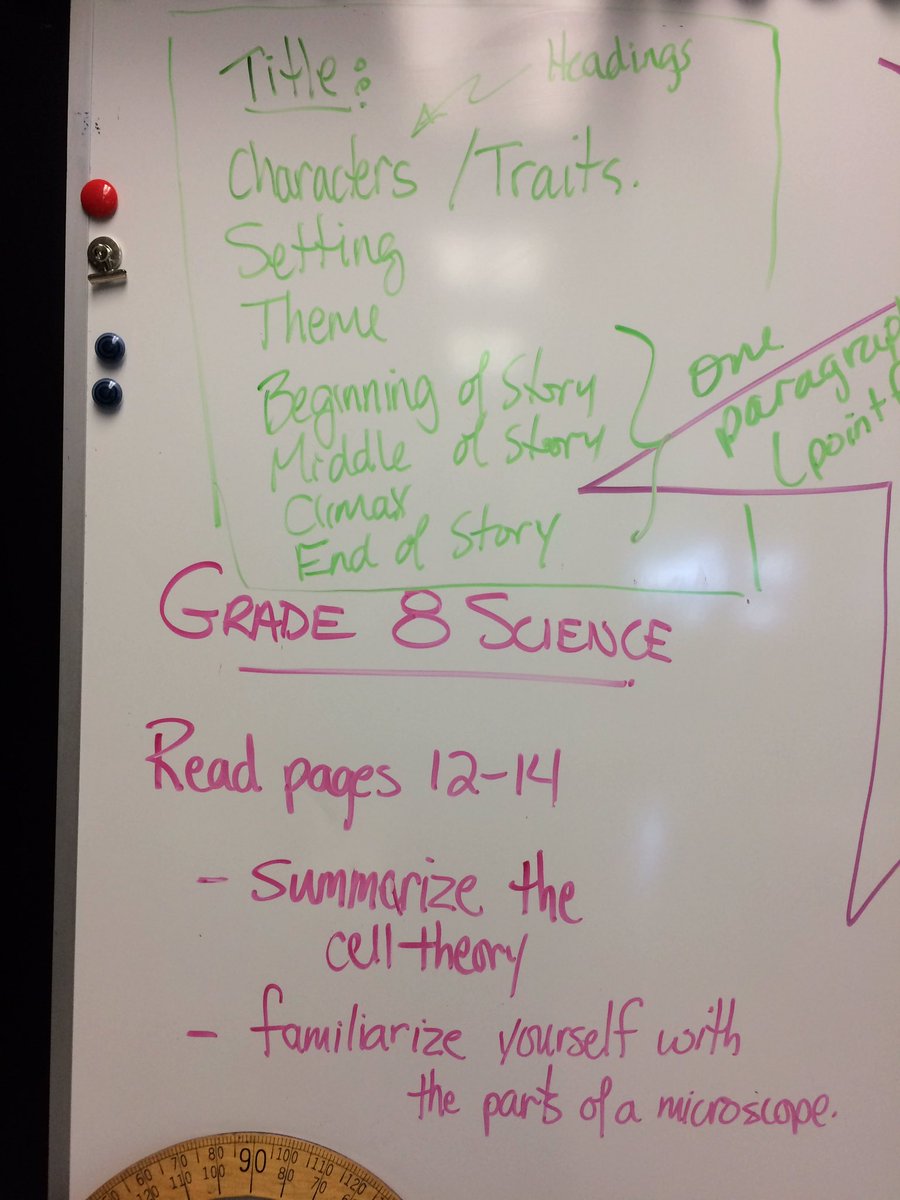 Title:
Headings
Characters /Traits.
Setting
Theme
Beginning of Story
Middle of Story
Climax
End of Story
one
paragraph
(point f
GRADE 8 SCIENCE
Read pages 12-14
- Summarize the
cell theory
- familiarize yourself with
the parts of a microscope.
60 70 80 90 100 110 120
120 110 100 80 70 60